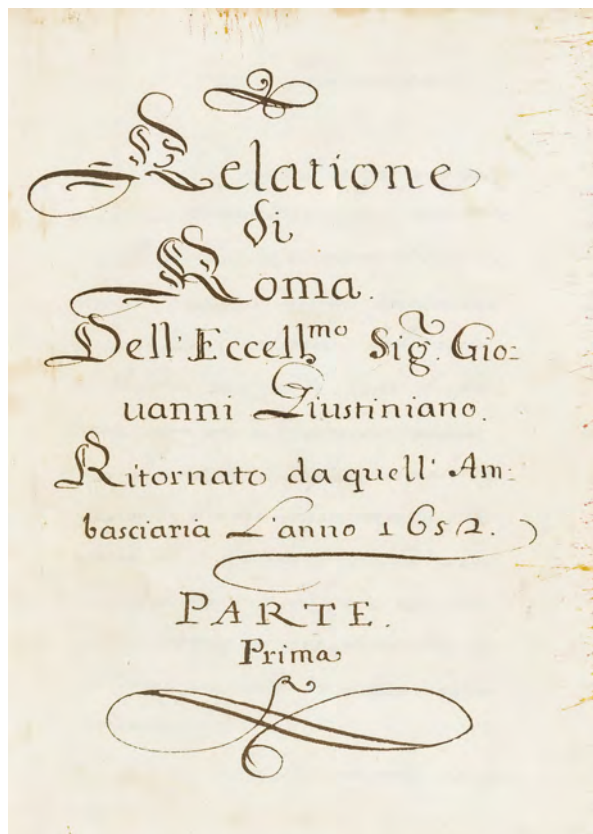 Relatione
di
Roma.
Dell' Eccell.mo Sig.r Gio:
uanni Giustiniano.
Ritornato da quell' Am:
basciaria L'anno 1652.
PARTE.
Prima